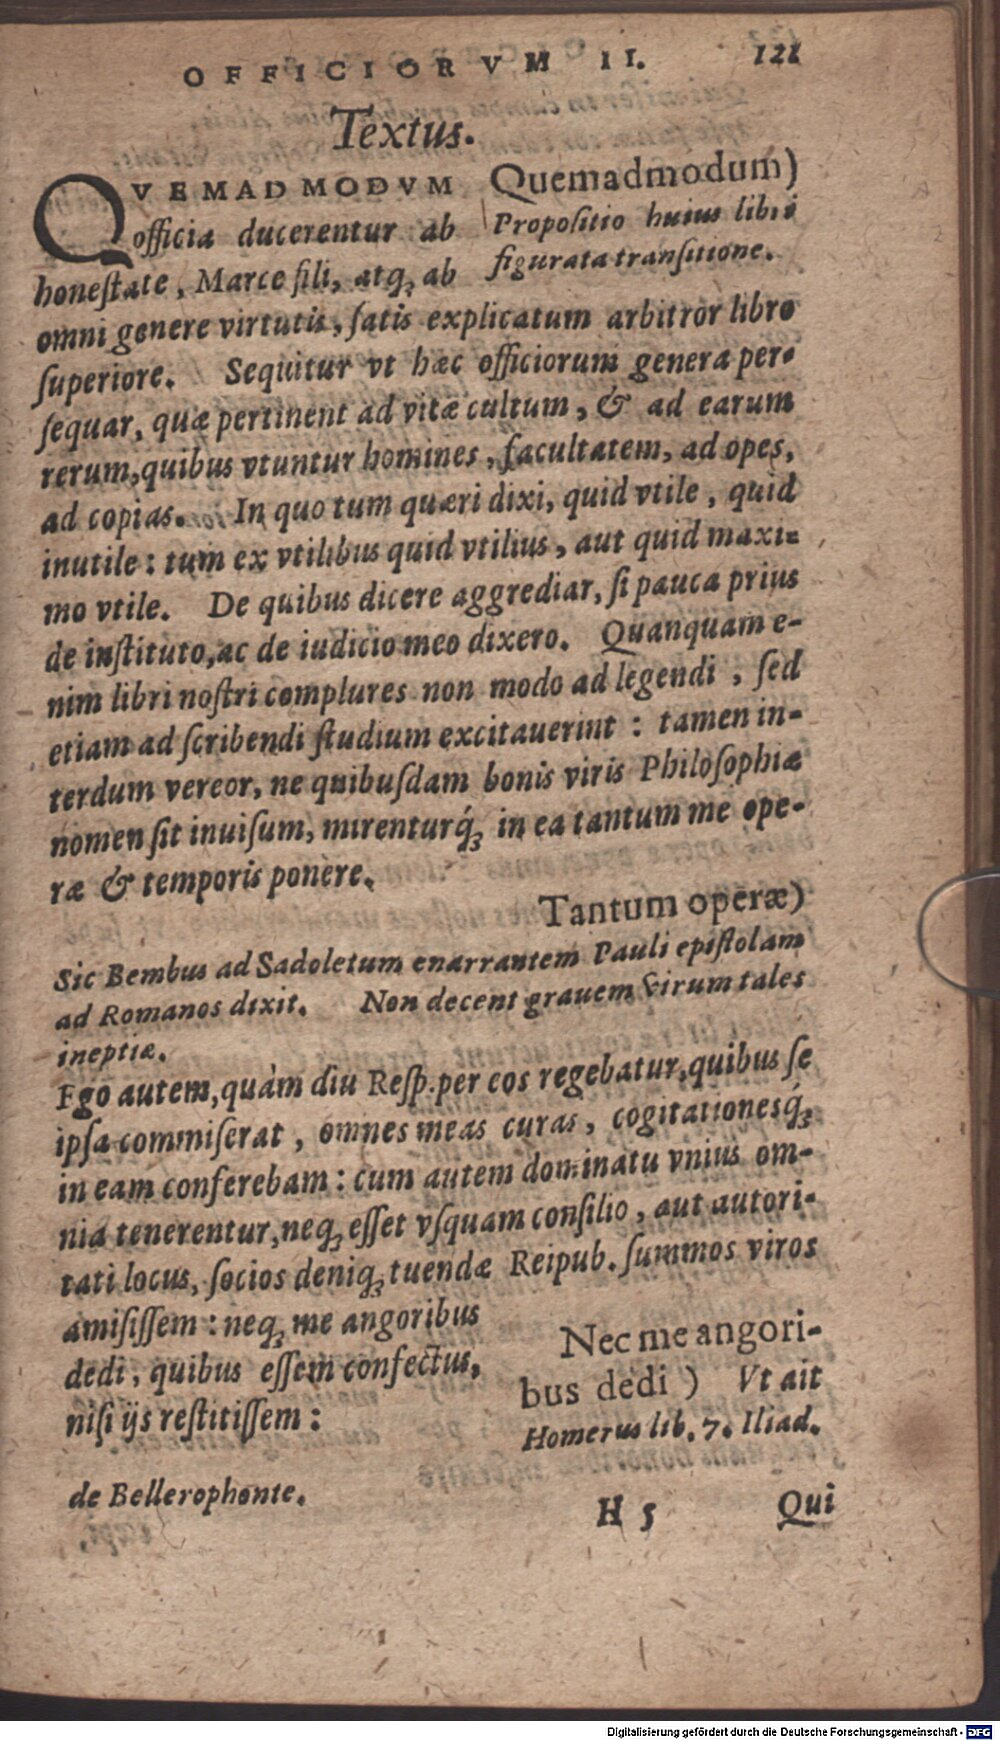 OFFICIORVM II. 121
Textus.
QVEMADMODVM
officia ducerentur ab
honeſtate, Marce fili, atq; ab
Quemadmodum)
Propoſitio huius libri
figurata tranſitione.
omni genere virtutis, ſatis explicatum arbitror libro
ſuperiore. Sequitur vt hæc officiorum genera per-
ſequar, quæ pertinent ad vitæ cultum, & ad earum
rerum, quibus vtuntur homines, facultatem, ad opes,
ad copias. In quo tum quæri dixi, quid vtile, quid
inutile: tum ex vtilibus quid vtilius, aut quid maxi-
mo vtile. De quibus dicere aggrediar, ſi pauca prius
de inſtituto, ac de iudicio meo dixero. Quanquam e-
nim libri noſtri complures non modo ad legendi, ſed
etiam ad ſcribendi ſtudium excitauerint: tamen in-
terdum vereor, ne quibuſdam bonis viris Philoſophiæ
nomen ſit inuiſum, mirenturq́; in ea tantum me ope-
ræ & temporis ponere.
Tantum operæ)
Sic Bembus ad Sadoletum enarrantem Pauli epiſtolam
ad Romanos dixit. Non decent grauem virum tales
ineptiæ.
Ego autem, quàm diu Reſp. per eos regebatur, quibus ſe
ipſa commiſerat, omnes meas curas, cogitationesq́;
in eam conferebam: cum autem dominatu vnius om-
nia tenerentur, neq; eſſet vſquam conſilio, aut autori-
tati locus, ſocios deniq; tuendæ Reipub. ſummos viros
amiſiſſem: neq; me angoribus
dedi, quibus eſſem confectus,
niſi ijs reſtitiſſem:
Nec me angori-
bus dedi) Vt ait
Homerus lib. 7. Iliad.
de Bellerophonte.
H 5 Qui
Digitalisierung gefördert durch die Deutsche Forschungsgemeinschaft - DFG